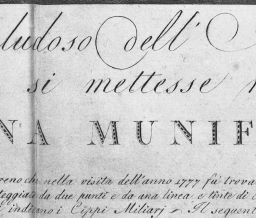 ludoso dell'
si mettesse
NA MUNIF
che nella visita dell'anno 1777 fù trova
da due punti e da una linea e tinte di
indicano i Cippi Miliarj . Il sequen